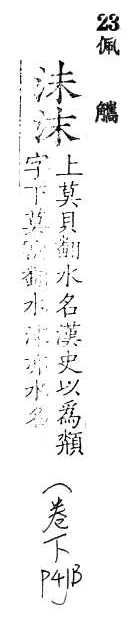 23佩觿
沬沫
上莫貝翻水名漢史以為頮
字下莫曷翻水沫亦水名
(卷下P41B)